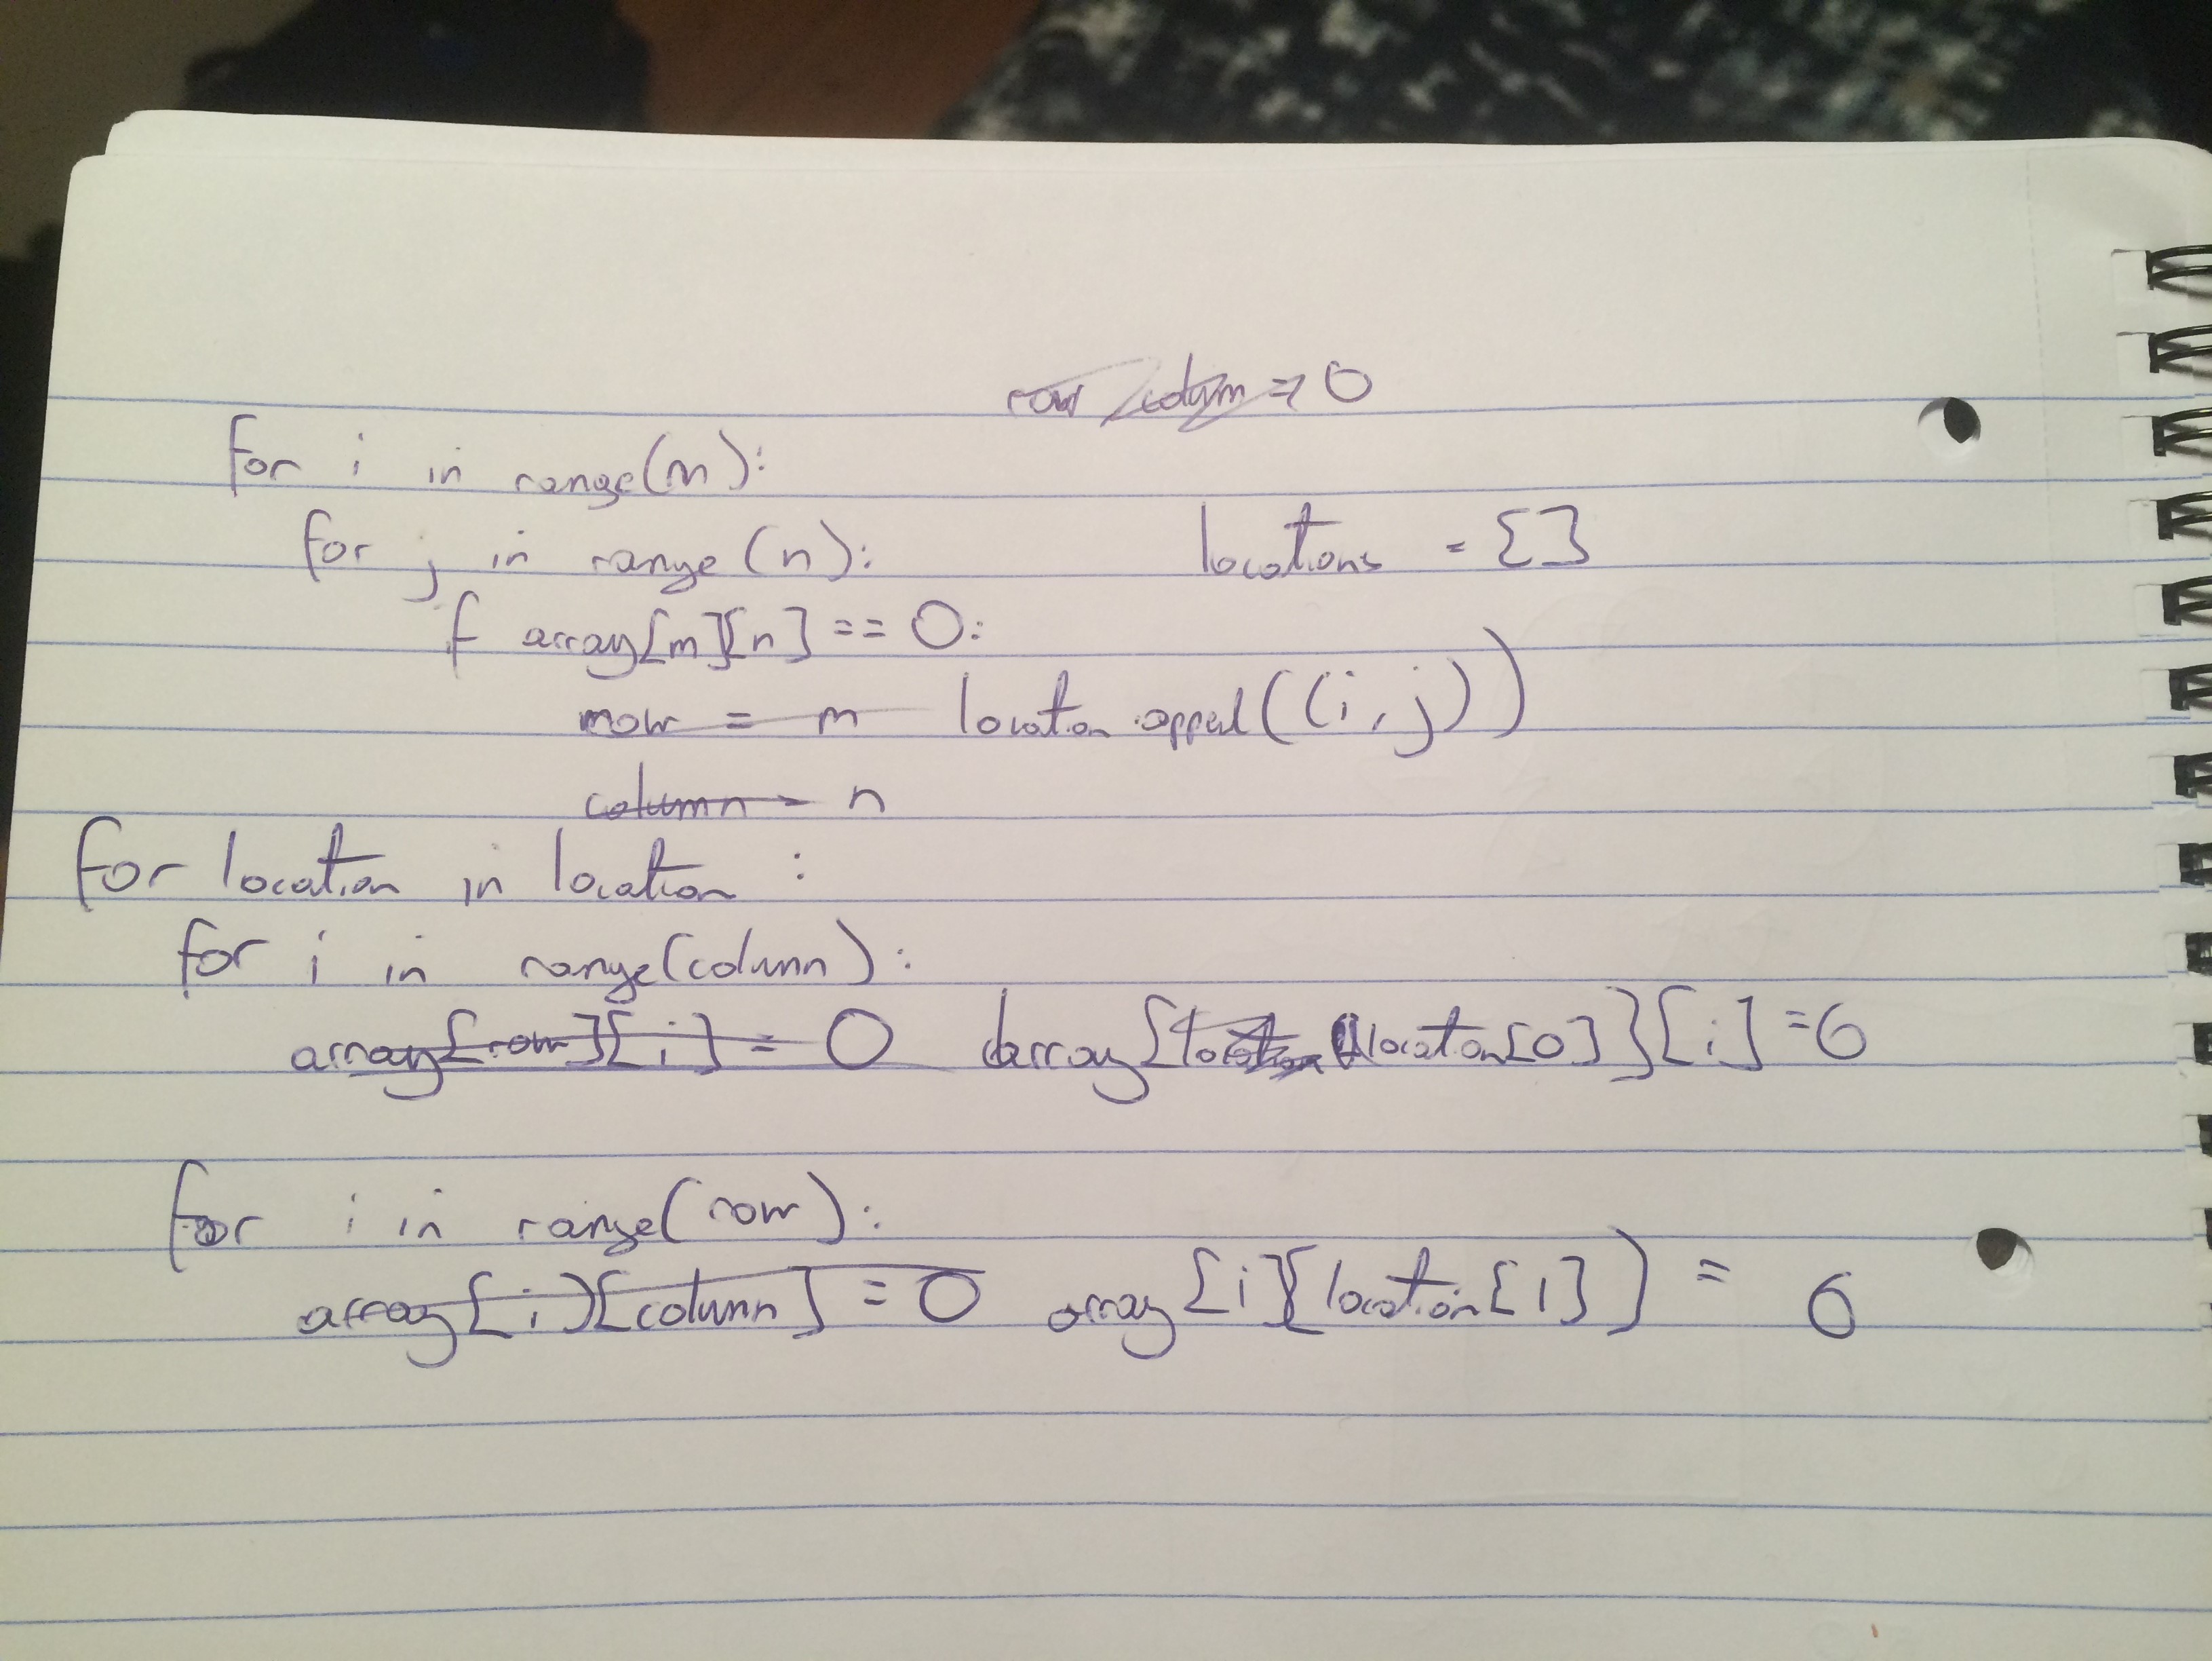 row column = 0
for i in range(m):
for j in range(n): locations = {}
if array[m][n] == 0:
row = m location.append((i,j))
column = n
for location in location :
for i in range(column):
array[row][i] = 0 array[location location[0]][i] = 0
for i in range(row):
array[i][column] = 0 array[i][location[1]] = 0